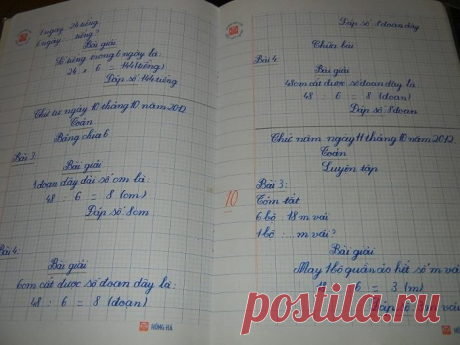 1 ngày: 24 tiếng
6 ngày: ... tiếng?
Bài giải
Số tiếng trong 6 ngày là:
24 x 6 = 144 (tiếng)
Đáp số: 144 tiếng
Thứ tư ngày 10 tháng 10 năm 2012
Toán
Bảng chia 6
Bài 3:
Bài giải
1 đoạn dây dài số cm là:
48 : 6 = 8 (cm)
Đáp số: 8cm
Bài 4:
Bài giải
6cm cắt được số đoạn dây là:
48 : 6 = 8 (đoạn)
HỒNG HÀ
Đáp số: 8 đoạn dây
Chữa bài
Bài 4:
Bài giải
48cm cắt được số đoạn dây là:
48 : 6 = 8 (đoạn)
Đáp số: 8 đoạn
Thứ năm ngày 11 tháng 10 năm 2012
Toán
Luyện tập
10
Bài 3:
Tóm tắt
6 bộ: 18 m vải
1 bộ: ... m vải?
Bài giải
May 1 bộ quần áo hết số m vải
18 : 6 = 3 (m)
Đáp số: m vải
HỒNG HÀ
postila.ru